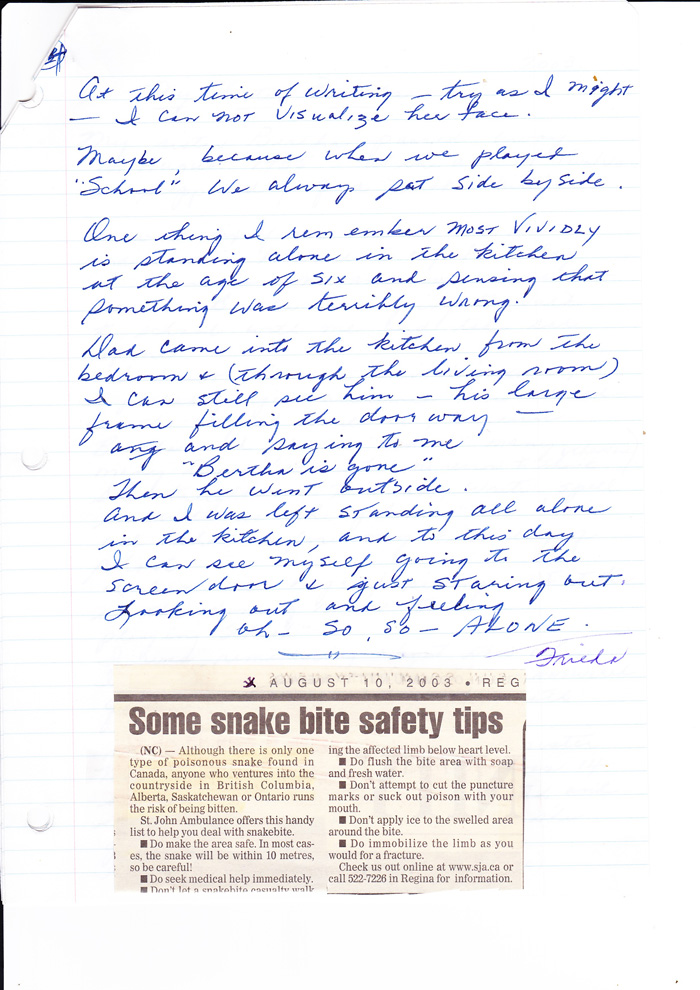 At this time of writing – try as I might
– I can not visualize her face.
Maybe, because when we played
"School" we always sat side by side.
One thing I rem ember MOST VIVIDLY
is standing alone in the kitchen
at the age of six and sensing that
something was terribly wrong.
Dad came into the kitchen from the
bedroom & (through the living room)
I can still see him – his large
frame filling the door way —
ang and saying to me
"Bertha is gone"
Then he went outside.
And I was left standing all alone
in the kitchen, and to this day
I can see myself going to the
screen door & just staring out.
Looking out and feeling
oh – so, so – ALONE.
Frieda
x AUGUST 10, 2003 • REG
Some snake bite safety tips
(NC) — Although there is only one
type of poisonous snake found in
Canada, anyone who ventures into the
countryside in British Columbia,
Alberta, Saskatchewan or Ontario runs
the risk of being bitten.
St. John Ambulance offers this handy
list to help you deal with snakebite.
■ Do make the area safe. In most cas-
es, the snake will be within 10 metres,
so be careful!
■ Do seek medical help immediately.
■ Don't let a snakebite casualty walk
ing the affected limb below heart level.
■ Do flush the bite area with soap
and fresh water.
■ Don't attempt to cut the puncture
marks or suck out poison with your
mouth.
■ Don't apply ice to the swelled area
around the bite.
■ Do immobilize the limb as you
would for a fracture.
Check us out online at www.sja.ca or
call 522-7226 in Regina for information.